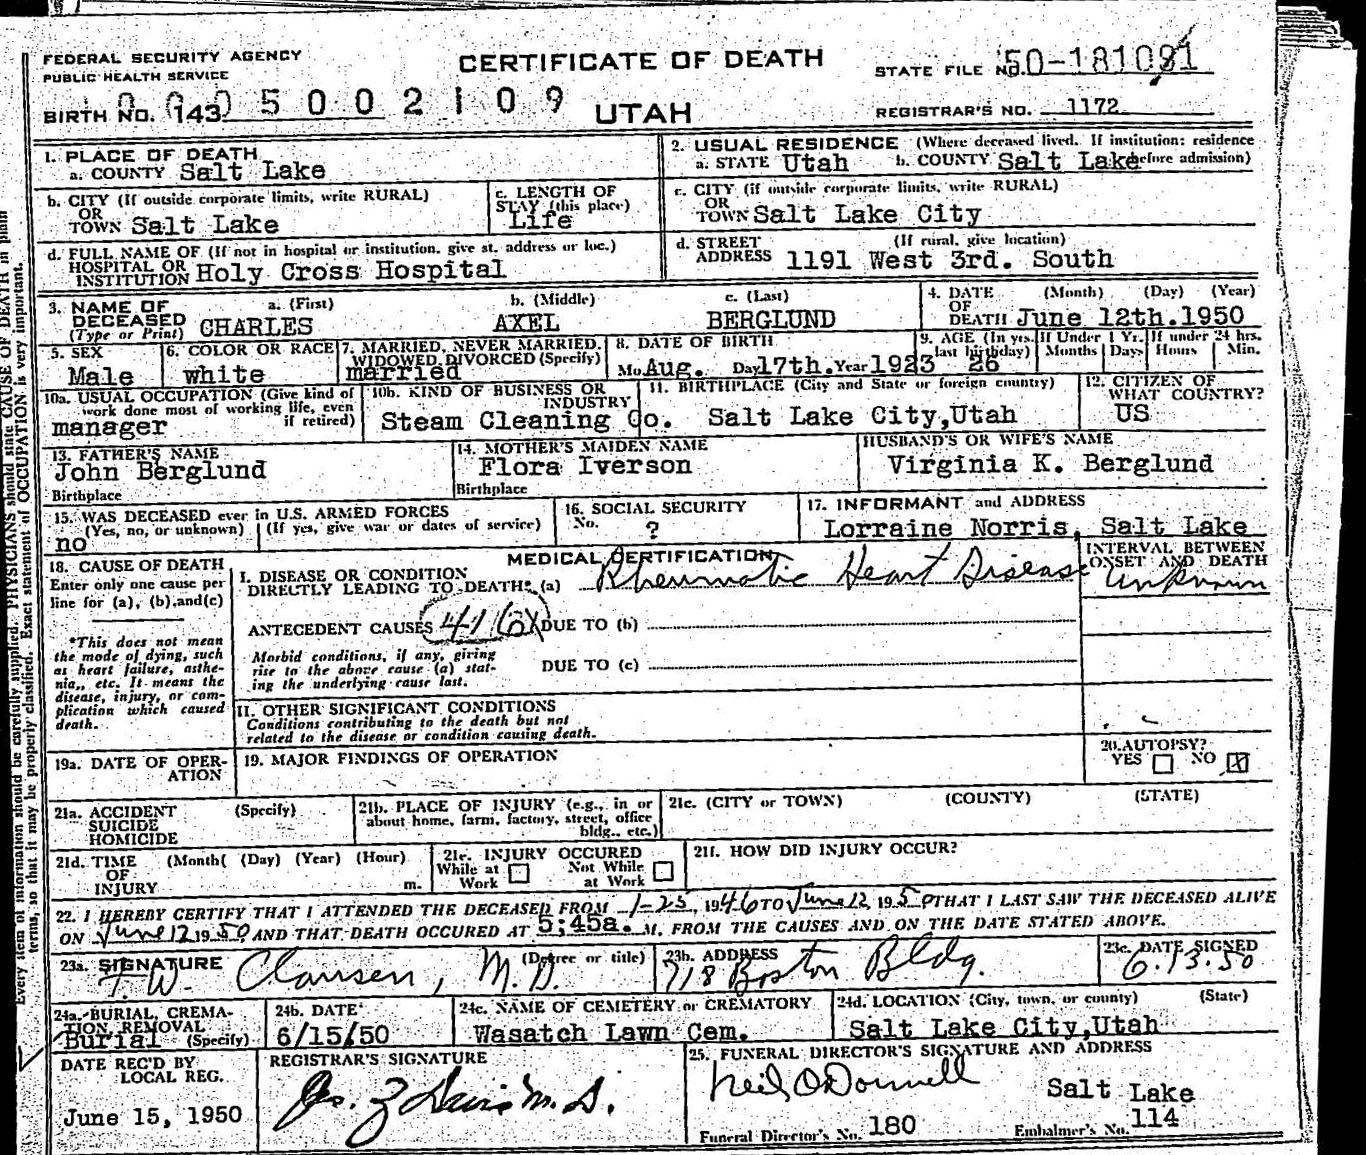 FEDERAL SECURITY AGENCY
PUBLIC HEALTH SERVICE
CERTIFICATE OF DEATH
STATE FILE NO. 50-181081
BIRTH NO. 143 0005002109
UTAH
REGISTRAR'S NO. 1172
1. PLACE OF DEATH
a. COUNTY Salt Lake
2. USUAL RESIDENCE (Where deceased lived. If institution: residence
a. STATE Utah b. COUNTY Salt Lake before admission)
b. CITY (If outside corporate limits, write RURAL)
OR
TOWN Salt Lake
c. LENGTH OF
STAY (this place)
Life
c. CITY (if outside corporate limits, write RURAL)
OR
TOWN Salt Lake City
d. FULL NAME OF (If not in hospital or institution, give st. address or loc.)
HOSPITAL OR
INSTITUTION Holy Cross Hospital
d. STREET (If rural, give location)
ADDRESS 1191 West 3rd. South
3. NAME OF
DECEASED
(Type or Print)
a. (First) b. (Middle) c. (Last)
CHARLES AXEL BERGLUND
4. DATE (Month) (Day) (Year)
OF
DEATH June 12th.1950
5. SEX
Male
6. COLOR OR RACE
white
7. MARRIED, NEVER MARRIED,
WIDOWED, DIVORCED (Specify)
married
8. DATE OF BIRTH
Mo Aug. Day 17th. Year 1923
9. AGE (In yrs. last birthday) If Under 1 Yr. If under 24 hrs.
26 Months Days Hours Min.
10a. USUAL OCCUPATION (Give kind of
work done most of working life, even
if retired)
manager
10b. KIND OF BUSINESS OR
INDUSTRY
Steam Cleaning Co.
11. BIRTHPLACE (City and State or foreign country)
Salt Lake City,Utah
12. CITIZEN OF
WHAT COUNTRY?
US
13. FATHER'S NAME
John Berglund
Birthplace
14. MOTHER'S MAIDEN NAME
Flora Iverson
Birthplace
HUSBAND'S OR WIFE'S NAME
Virginia K. Berglund
15. WAS DECEASED ever in U.S. ARMED FORCES
(Yes, no, or unknown) (If yes, give war or dates of service)
no
16. SOCIAL SECURITY
No. ?
17. INFORMANT and ADDRESS
Lorraine Norris, Salt Lake
18. CAUSE OF DEATH
Enter only one cause per
line for (a), (b),and(c)
*This does not mean
the mode of dying, such
as heart failure, asthe-
nia,, etc. It means the
disease, injury, or com-
plication which caused
death.
MEDICAL CERTIFICATION
I. DISEASE OR CONDITION
DIRECTLY LEADING TO DEATH* (a) Rheumatic Heart Disease
INTERVAL BETWEEN
ONSET AND DEATH
unknown
ANTECEDENT CAUSES DUE TO (b)
Morbid conditions, if any, giving
rise to the above cause (a) stat-
ing the underlying cause last.
DUE TO (c)
II. OTHER SIGNIFICANT CONDITIONS
Conditions contributing to the death but not
related to the disease or condition causing death.
19a. DATE OF OPER-
ATION
19. MAJOR FINDINGS OF OPERATION
20. AUTOPSY?
YES NO X
21a. ACCIDENT (Specify)
SUICIDE
HOMICIDE
21b. PLACE OF INJURY (e.g., in or
about home, farm, factory, street, office
bldg., etc.)
21c. (CITY or TOWN) (COUNTY) (STATE)
21d. TIME (Month( (Day) (Year) (Hour)
OF
INJURY m.
21e. INJURY OCCURED
While at Work Not While at Work
21f. HOW DID INJURY OCCUR?
22. I HEREBY CERTIFY THAT I ATTENDED THE DECEASED FROM 1-25, 1946 TO June 12 1950 THAT I LAST SAW THE DECEASED ALIVE
ON June 12 1950 AND THAT DEATH OCCURED AT 5;45a. M. FROM THE CAUSES AND ON THE DATE STATED ABOVE.
23a. SIGNATURE (Degree or title)
F. W. Clausen, M.D.
23b. ADDRESS
718 Boston Bldg.
23c. DATE SIGNED
6.13.50
24a. BURIAL, CREMA-
TION, REMOVAL
Burial (Specify)
24b. DATE
6/15/50
24c. NAME OF CEMETERY or CREMATORY
Wasatch Lawn Cem.
24d. LOCATION (City, town, or county) (State)
Salt Lake City,Utah
DATE REC'D BY
LOCAL REG.
June 15, 1950
REGISTRAR'S SIGNATURE
25. FUNERAL DIRECTOR'S SIGNATURE AND ADDRESS
Neil O'Donnell Salt Lake
Funeral Director's No. 180 Embalmer's No. 114